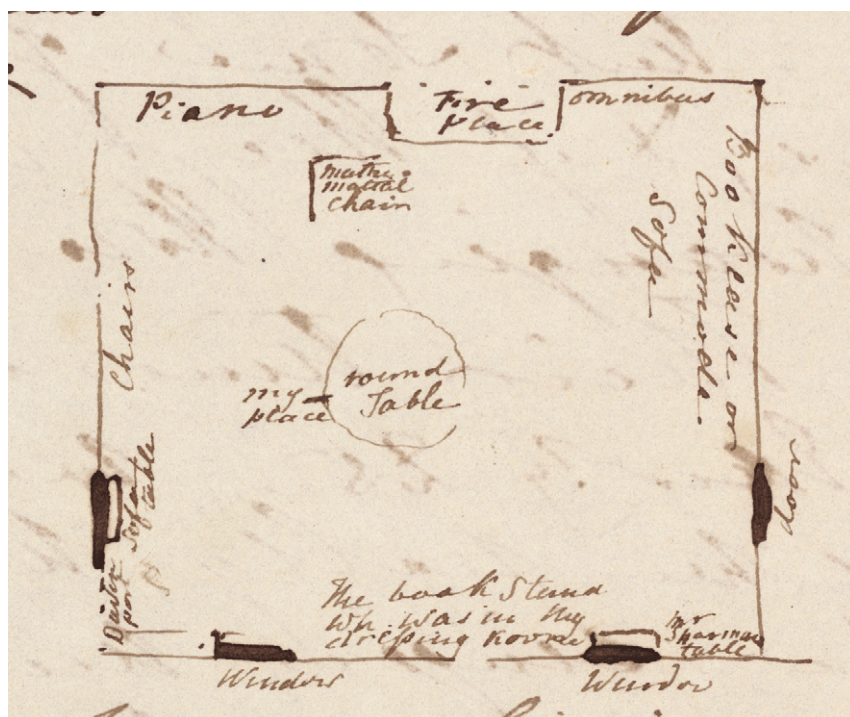 Piano
Fire
place
omnibus
mathe
matical
chair
Bookcase or
Commode.
Sofa
Chairs
round
Table
my
place
Sofa
table
Daven
port
door
The book Stand
wh. was in my
dressing room
Mr
Sharman
table
Window
Window